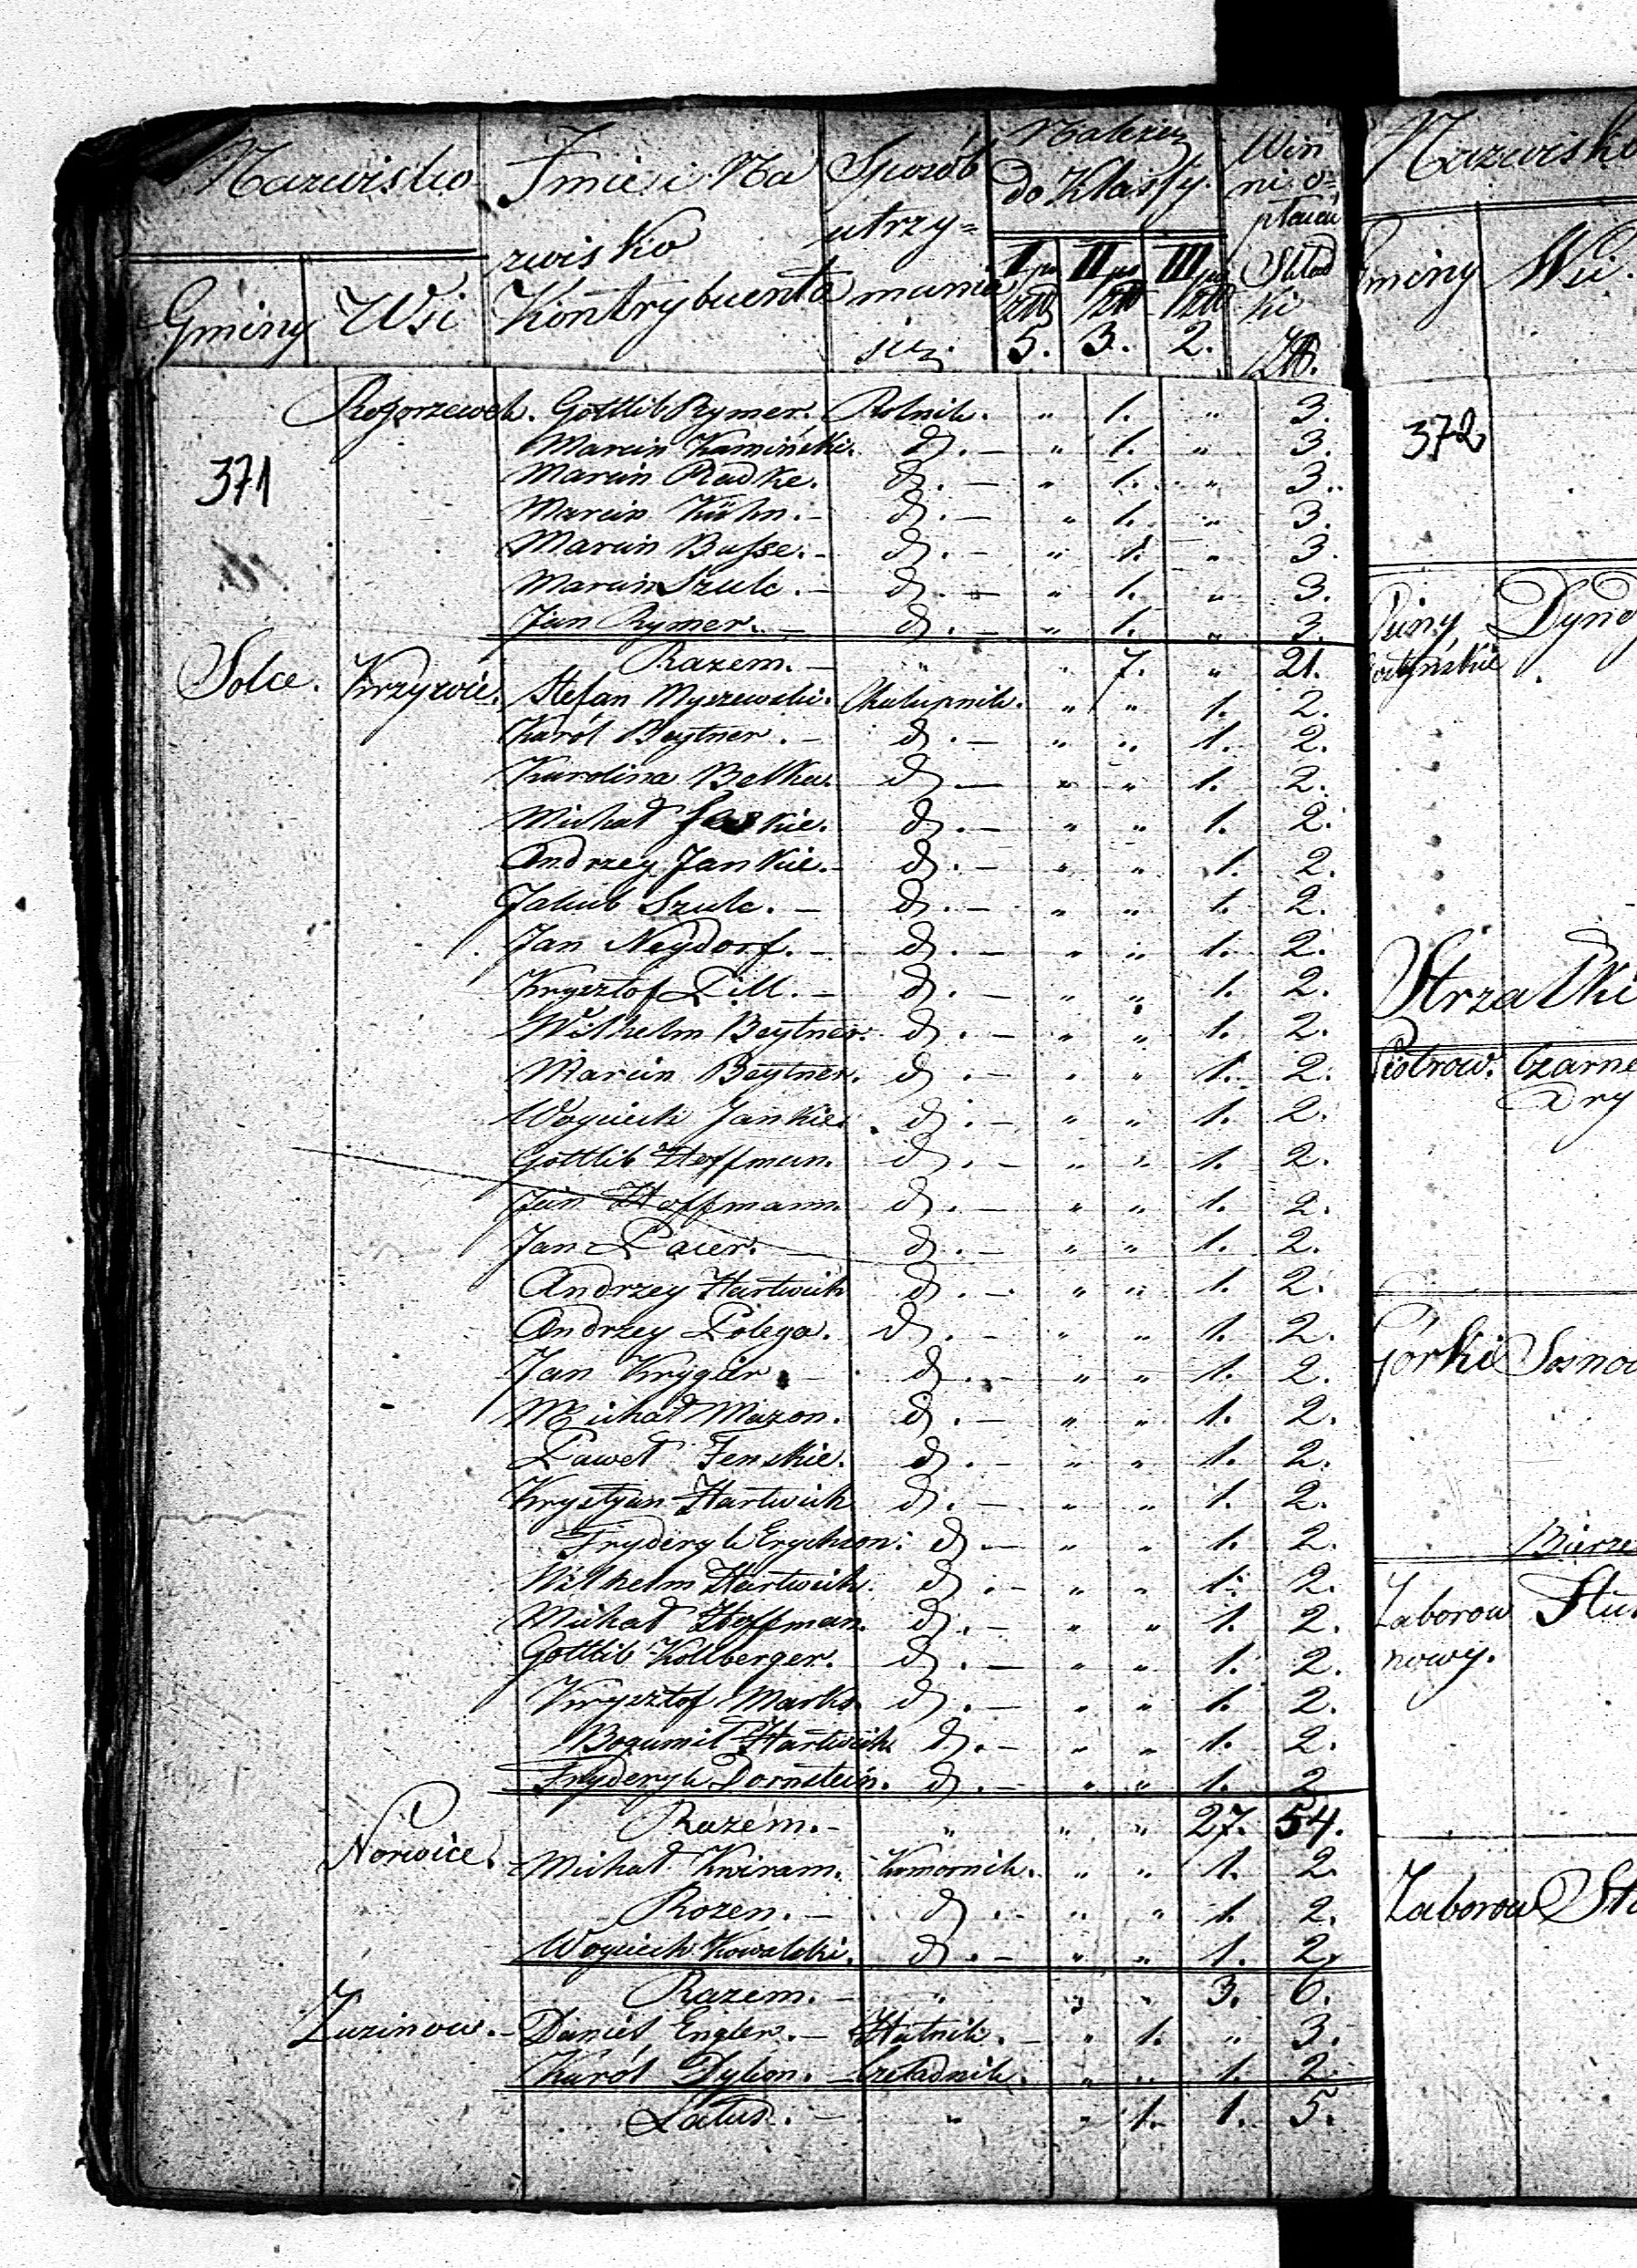 Nazwisko Imie i Na Sposób Należą Win
do Klassy. ni o-
zwisko utrzy= płacić
Gminy Wsi Kontrybuenta mania I po II po III po Skład
ki
się. 5. 3. 2. Złł.
Rogorzewek. Gottlib Rymer. Rolnik. " 1. " 3.
371 Marcin Kamiński. d. — " 1. " 3.
Marcin Radke. d. — " 1. " 3.
Marcin Kühn. — d. — " 1. " 3.
Marcin Busse. — d. — " 1. " 3.
Marcin Szulc. — d. — " 1. " 3.
Jan Rymer. — d. — " 1. " 3.
Razem. — " " 7. " 21.
Solce. Krzywie. Stefan Myszewski. Chałupnik. " " 1. 2.
Karól Beytner. — d. — " " 1. 2.
Karolina Betka. d — " " 1. 2.
Michał d. — " " 1. 2.
Andrzey Jankie. — d. — " " 1. 2.
Jakub Szulc. — d. — " " 1. 2.
Jan Neydorf. — d. — " " 1. 2.
Krysztof Pill. — d. — " " 1. 2.
Wilhelm Beytner. d. — " " 1. 2.
Marcin Beytner. d. — " " 1. 2.
Woyciech Jankie. d. — " " 1. 2.
Gottlib Hoffman. d. — " " 1. 2.
Jan Hoffmann. d. — " " 1. 2.
Jan Pacer. — d. — " " 1. 2.
Andrzey Hartwich d. — " " 1. 2.
Andrzey Polega. d. — " " 1. 2.
Jan Krygier. — d. — " " 1. 2.
Michał Mazon. d. — " " 1. 2.
Paweł Fenskie. d. — " " 1. 2.
Krystyan Hartwich d. — " " 1. 2.
Fryderyk Erychson. d. — " " 1. 2.
Wilhelm Hartwich. d. — " " 1. 2.
Michał Hoffman. d. — " " 1. 2.
Gottlib Kollberger. d. — " " 1. 2.
Krysztof Marks. d. — " " 1. 2.
Bogumił Hartwich. d. — " " 1. 2.
Fryderyk Dornstein. d. — " " 1. 2
Razem. — " " " 27. 54.
Norwice. Michał Kwiram. Komornik. " " 1. 2.
Rozen. — d. — " " 1. 2.
Woyciech Kowalski. d. — " " 1. 2.
Razem. — " " " 3. 6.
Zuzinow. — Daniel Engler. — Hutnik. — " 1. " 3.
Karól Dylion. — Czeladnik. " " 1. 2.
Latus. — " " 1. 1. 5.
Nazwisko
Gminy Wsi.
372
Strzałki
Piotrow. Czarne
Dry
Górki Sosno
Zaborow Stu
nowy.
Zaborow St